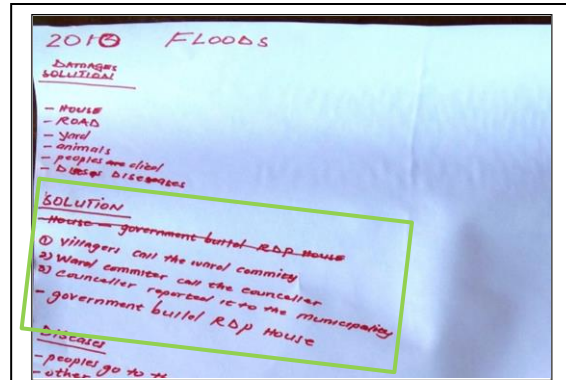 2010 FLOODS
DAMAGES
SOLUTION
- HOUSE
- ROAD
- yard
- animals
- peoples are died
- DISEASES
SOLUTION
- House - government build RDP House
① Villagers call the ward commity
2) Ward commiter call the councellor
3) Counceller reported it to the municipality
- government build RDP House
Diseases
- peoples go to
- other